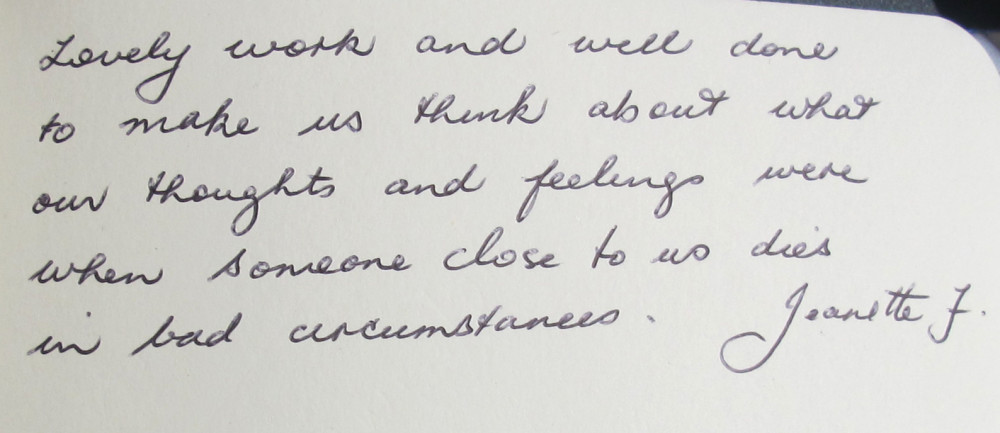 Lovely work and well done
to make us think about what
our thoughts and feelings were
when someone close to us dies
in bad circumstances. Jeanette F.